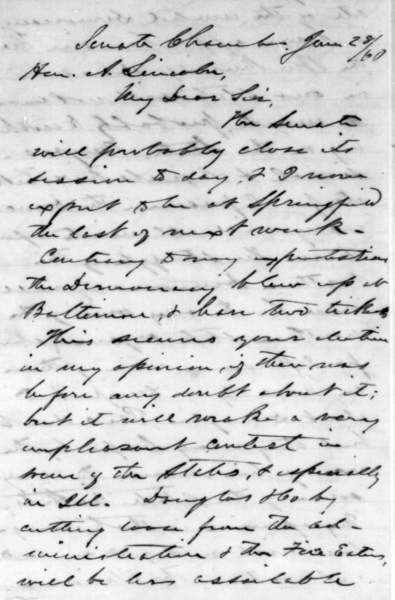 Senate Chamber, June 28/60
Hon. A. Lincoln,
My Dear Sir,
The Senate
will probably close its
session to day, & I now
expect to be at Springfield
the last of next week.
Contrary to my expectations
the Democracy blew up at
Baltimore, & have two tickets
This secures your election
in my opinion, if there was
before any doubt about it;
but it will make a very
unpleasant contest in
some of the States, & especially
in Ill. Douglas & Co by
cutting loose from the ad-
ministration & the Fire Eaters,
will be less assailable